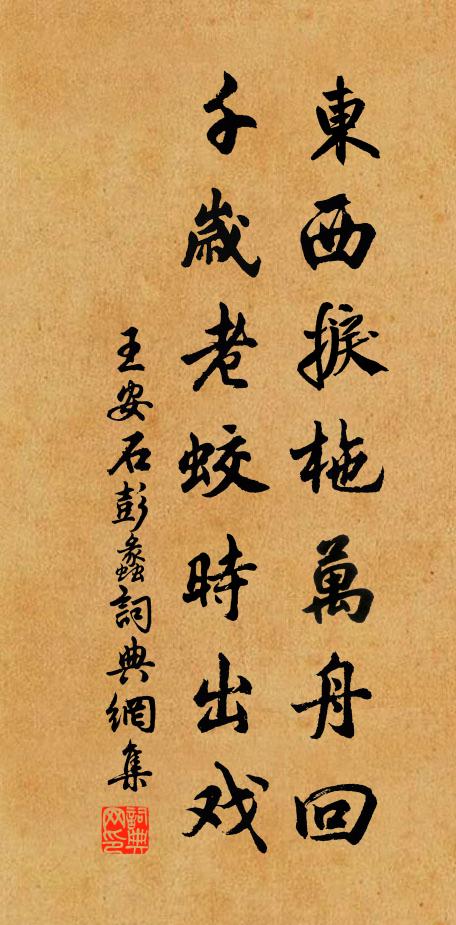 東西捩柂萬舟回
千歲老蛟時出戏
王安石彭蠡詞典網集
詞典
网印